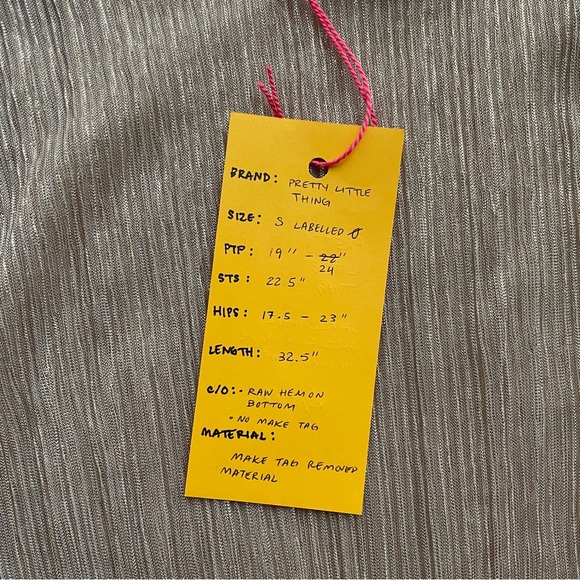 BRAND: PRETTY LITTLE
THING
SIZE: S LABELLED
PTP: 19" - 22"
24
STS: 22.5"
HIPS: 17.5 - 23"
LENGTH: 32.5"
C/O: - RAW HEM ON
BOTTOM
- NO MAKE TAG
MATERIAL:
MAKE TAG REMOVED
MATERIAL